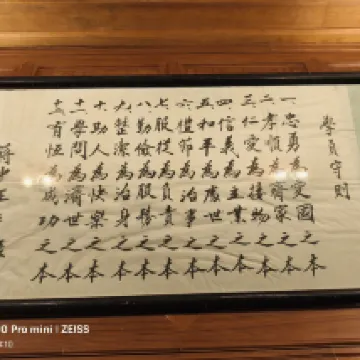 學員守則
一忠勇為愛國之本
二孝順為齊家之本
三仁愛為接物之本
四信義為立業之本
五和平為處世之本
六禮節為治事之本
七服從為負責之本
八勤儉為服務之本
九整潔為治身之本
十助人為快樂之本
十一學問為濟世之本
十二有恆為成功之本
蔣中正
00 Pro mini | ZEISS